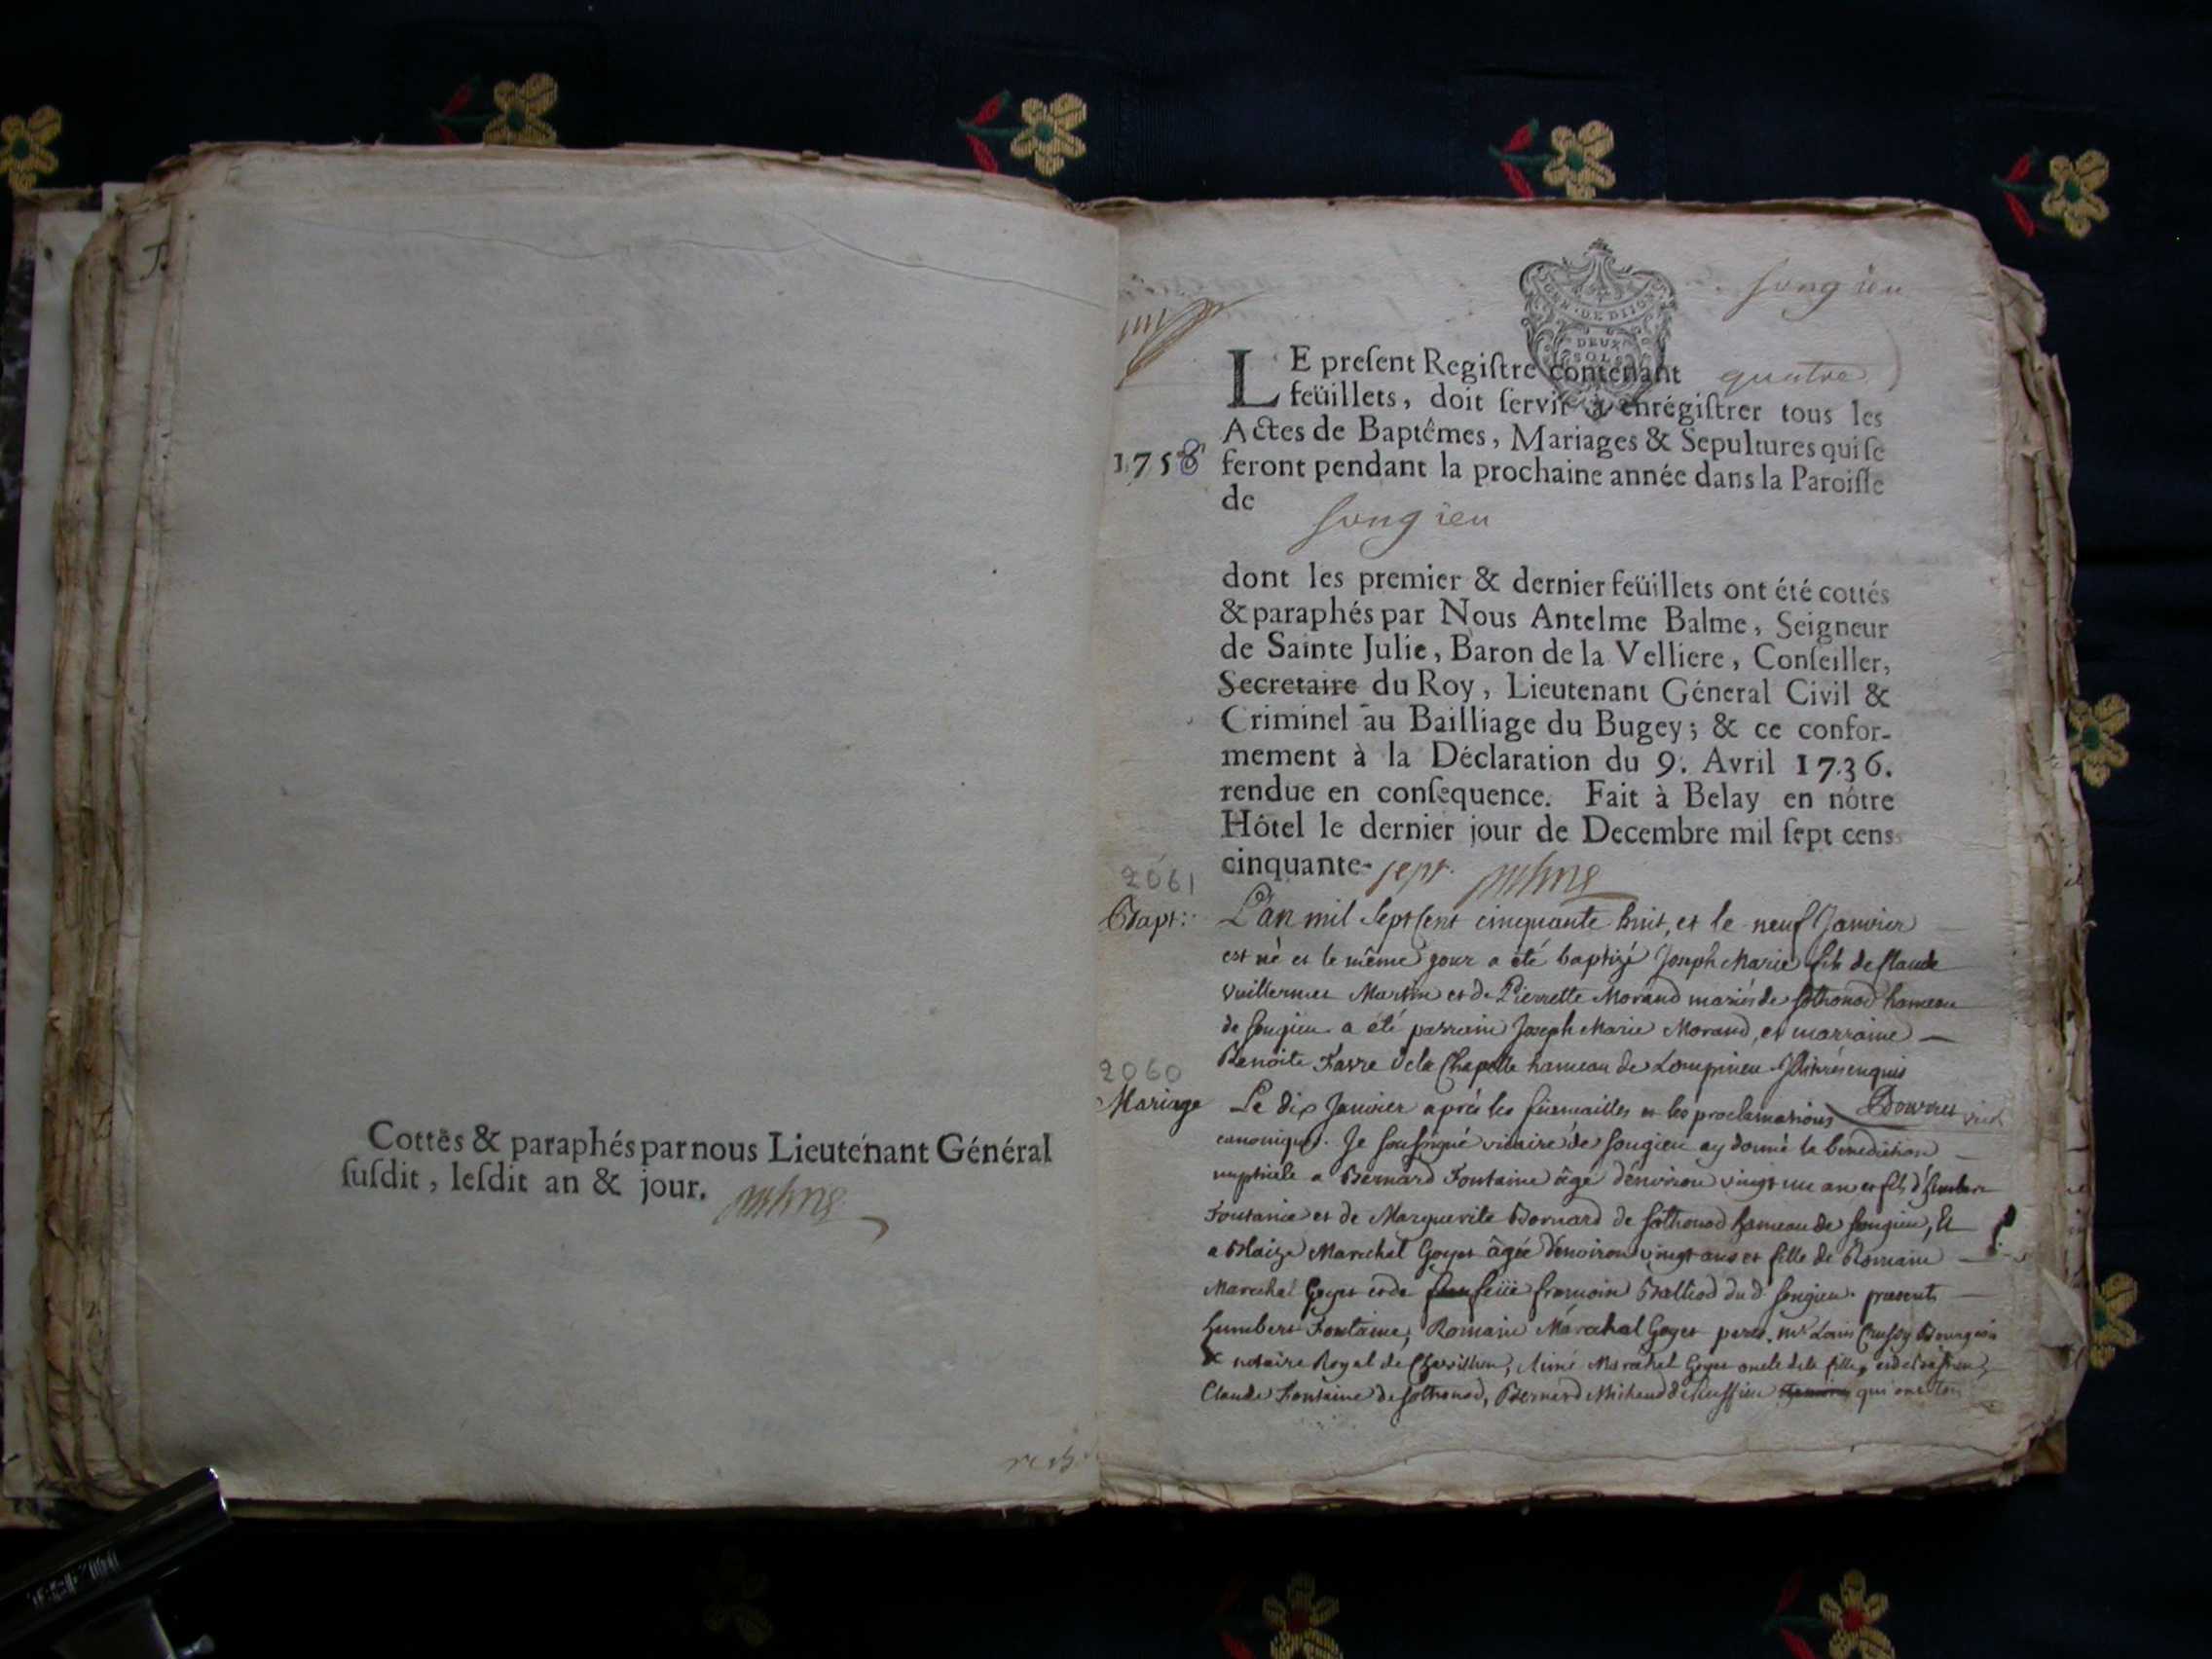 Cottés & paraphés par nous Lieutenant Général
ſuſdit, leſdit an & jour.
songieu
GEN. DE DIJON
DEUX
SOLS
LE preſent Regiſtre contenant quatre
feüillets, doit ſervir à enrégiſtrer tous les
Actes de Baptêmes, Mariages & Sepultures qui ſe
1758
feront pendant la prochaine année dans la Paroiſſe
de
songieu
dont les premier & dernier feüillets ont été cottés
& paraphés par Nous Antelme Balme, Seigneur
de Sainte Julie, Baron de la Velliere, Conſeiller,
Secretaire du Roy, Lieutenant Géneral Civil &
Criminel au Bailliage du Bugey; & ce confor-
mement à la Déclaration du 9. Avril 1736.
rendue en conſequence. Fait à Belay en nôtre
Hôtel le dernier jour de Decembre mil ſept cens
cinquante-sept.
2061
Bapt:
L'an mil sept cent cinquante huit, et le neuf Janvier
est né et le même jour a été baptizé Joseph Marie fils de Claude
Vuillermet Martin et de Pierrette Morand mariés de sothonod hameau
de songieu a été parrain Joseph Marie Morand, et marraine
Benoite Favre de la Chapelle hameau de Lompnieu
2060
Mariage
Le dix Janvier après les fiancailles et les proclamations
canoniques. Je soussigné vicaire de songieu ay donné la benediction
nuptiale a Bernard Fontaine âgé d'environ vingt un an et fils d'humbert
Fontaine et de Marguerite Bornard de sothonod hameau de songieu, Et
a Blaize Marechal Goyet âgée d'environ vingt ans et fille de Romain
Marechal Goyet et de feüe françoise Balliod du d. songieu. presents
humbert Fontaine, Romain Maréchal Goyet peres. mr Louis Bourgeois
& notaire Royal de Aimé Maréchal Goyet oncle de la fille,
Claude Fontaine de sothonod, Bernard Michaud de Ruffieu qui ont